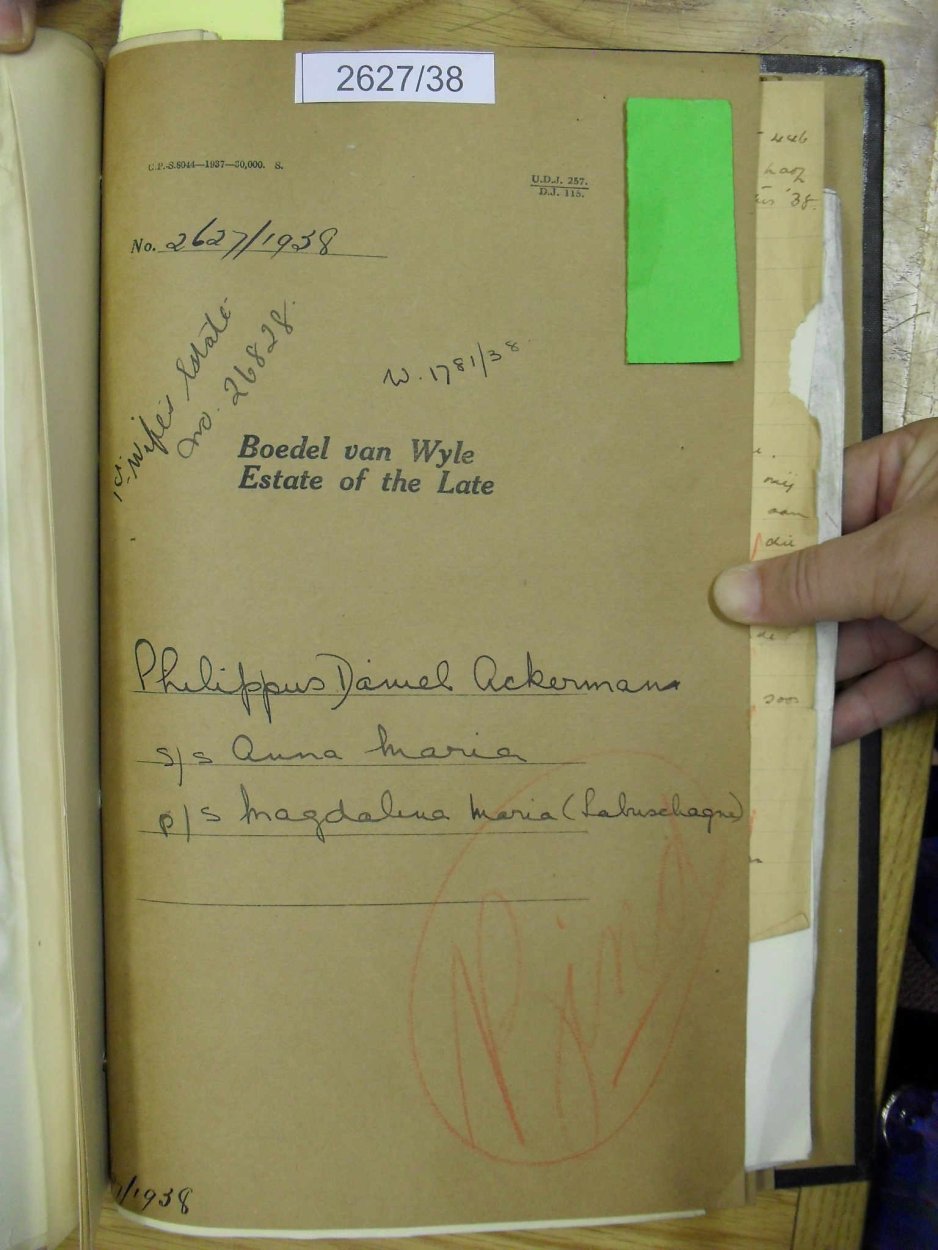 2627/38
G.P.-S.8944—1937—30,000. S.
U.D.J. 257.
D.J. 115.
No. 2627/1938
1st Wife's Estate
No. 26828.
W. 1781/38
Boedel van Wyle
Estate of the Late
Philippus Daniel Ackermann
s/s Anna Maria
p/s Magdalena Maria (Labuschagne)
/1938
'38.
mij
aan
die
de
soos